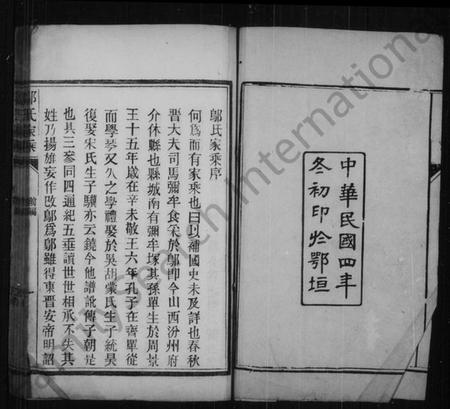 中華民國四年
冬初印於鄂垣
鄔氏家乘序
何爲而有家乘也曰以補國史未及詳也春秋
晋大夫司馬彌牟食采於鄔即今山西汾州府
介休縣也縣城南有彌牟塚其孫單生於周景
王十五年歲在辛未敬王六年孔子在齊單從
而學琴又久之學禮娶於吳胡蒙氏生子統昊
復娶宋氏生子驥亦云鏡今他譜訛傳子朝是
也具三參同四通紀五垂讀世世相承不失其
姓乃揚雄妄作改鄔爲鄥雖得東晋安帝明詔
氏家乘
Search International